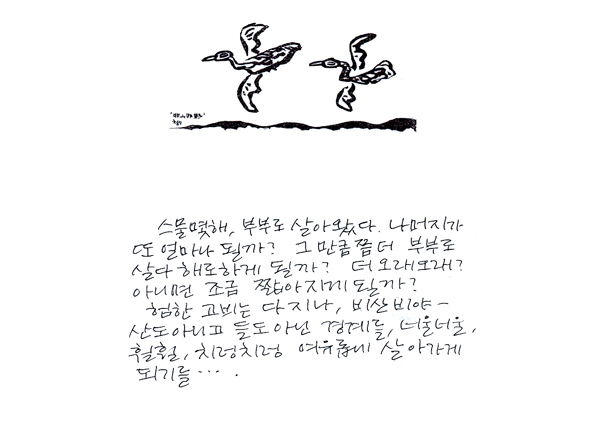 스물몇해, 부부로 살아왔다. 나머지가
또 얼마나 될까? 그만큼쯤 더 부부로
살다 해로하게 될까? 더 오래오래?
아니면 조금 짧아지게 될까?
험한 고비는 다 지나, 비산비야 -
산도 아니고 들도 아닌 경계를, 너울너울,
훨훨, 치렁치렁 여유롭게 살아가게
되기를 ··· .